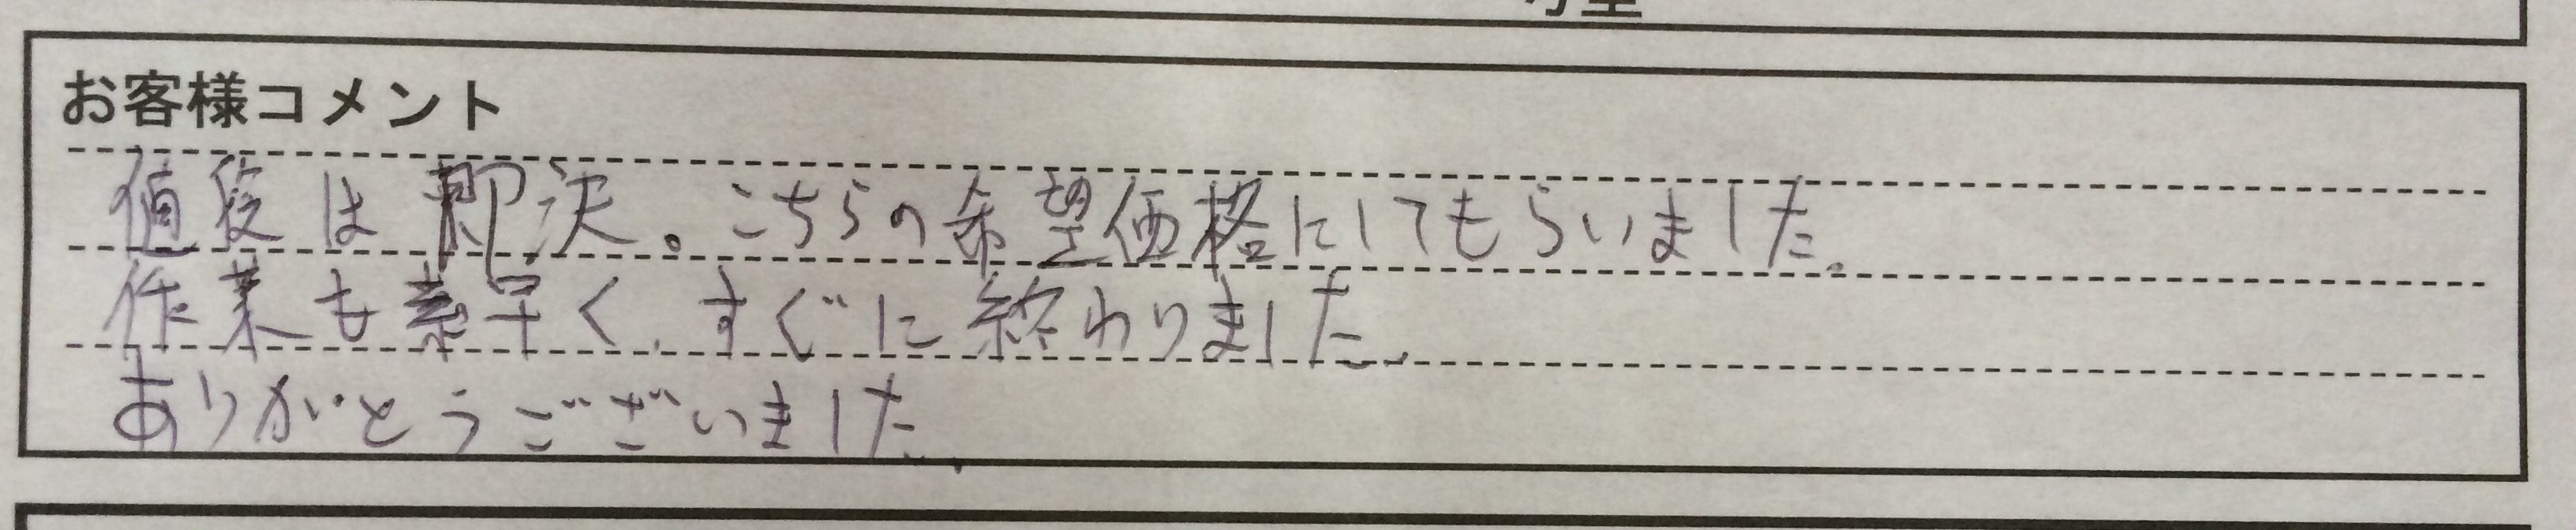 お客様コメント
値段は即決。こちらの希望価格にしてもらいました。
作業も素早く、すぐに終わりました。
ありがとうございました。